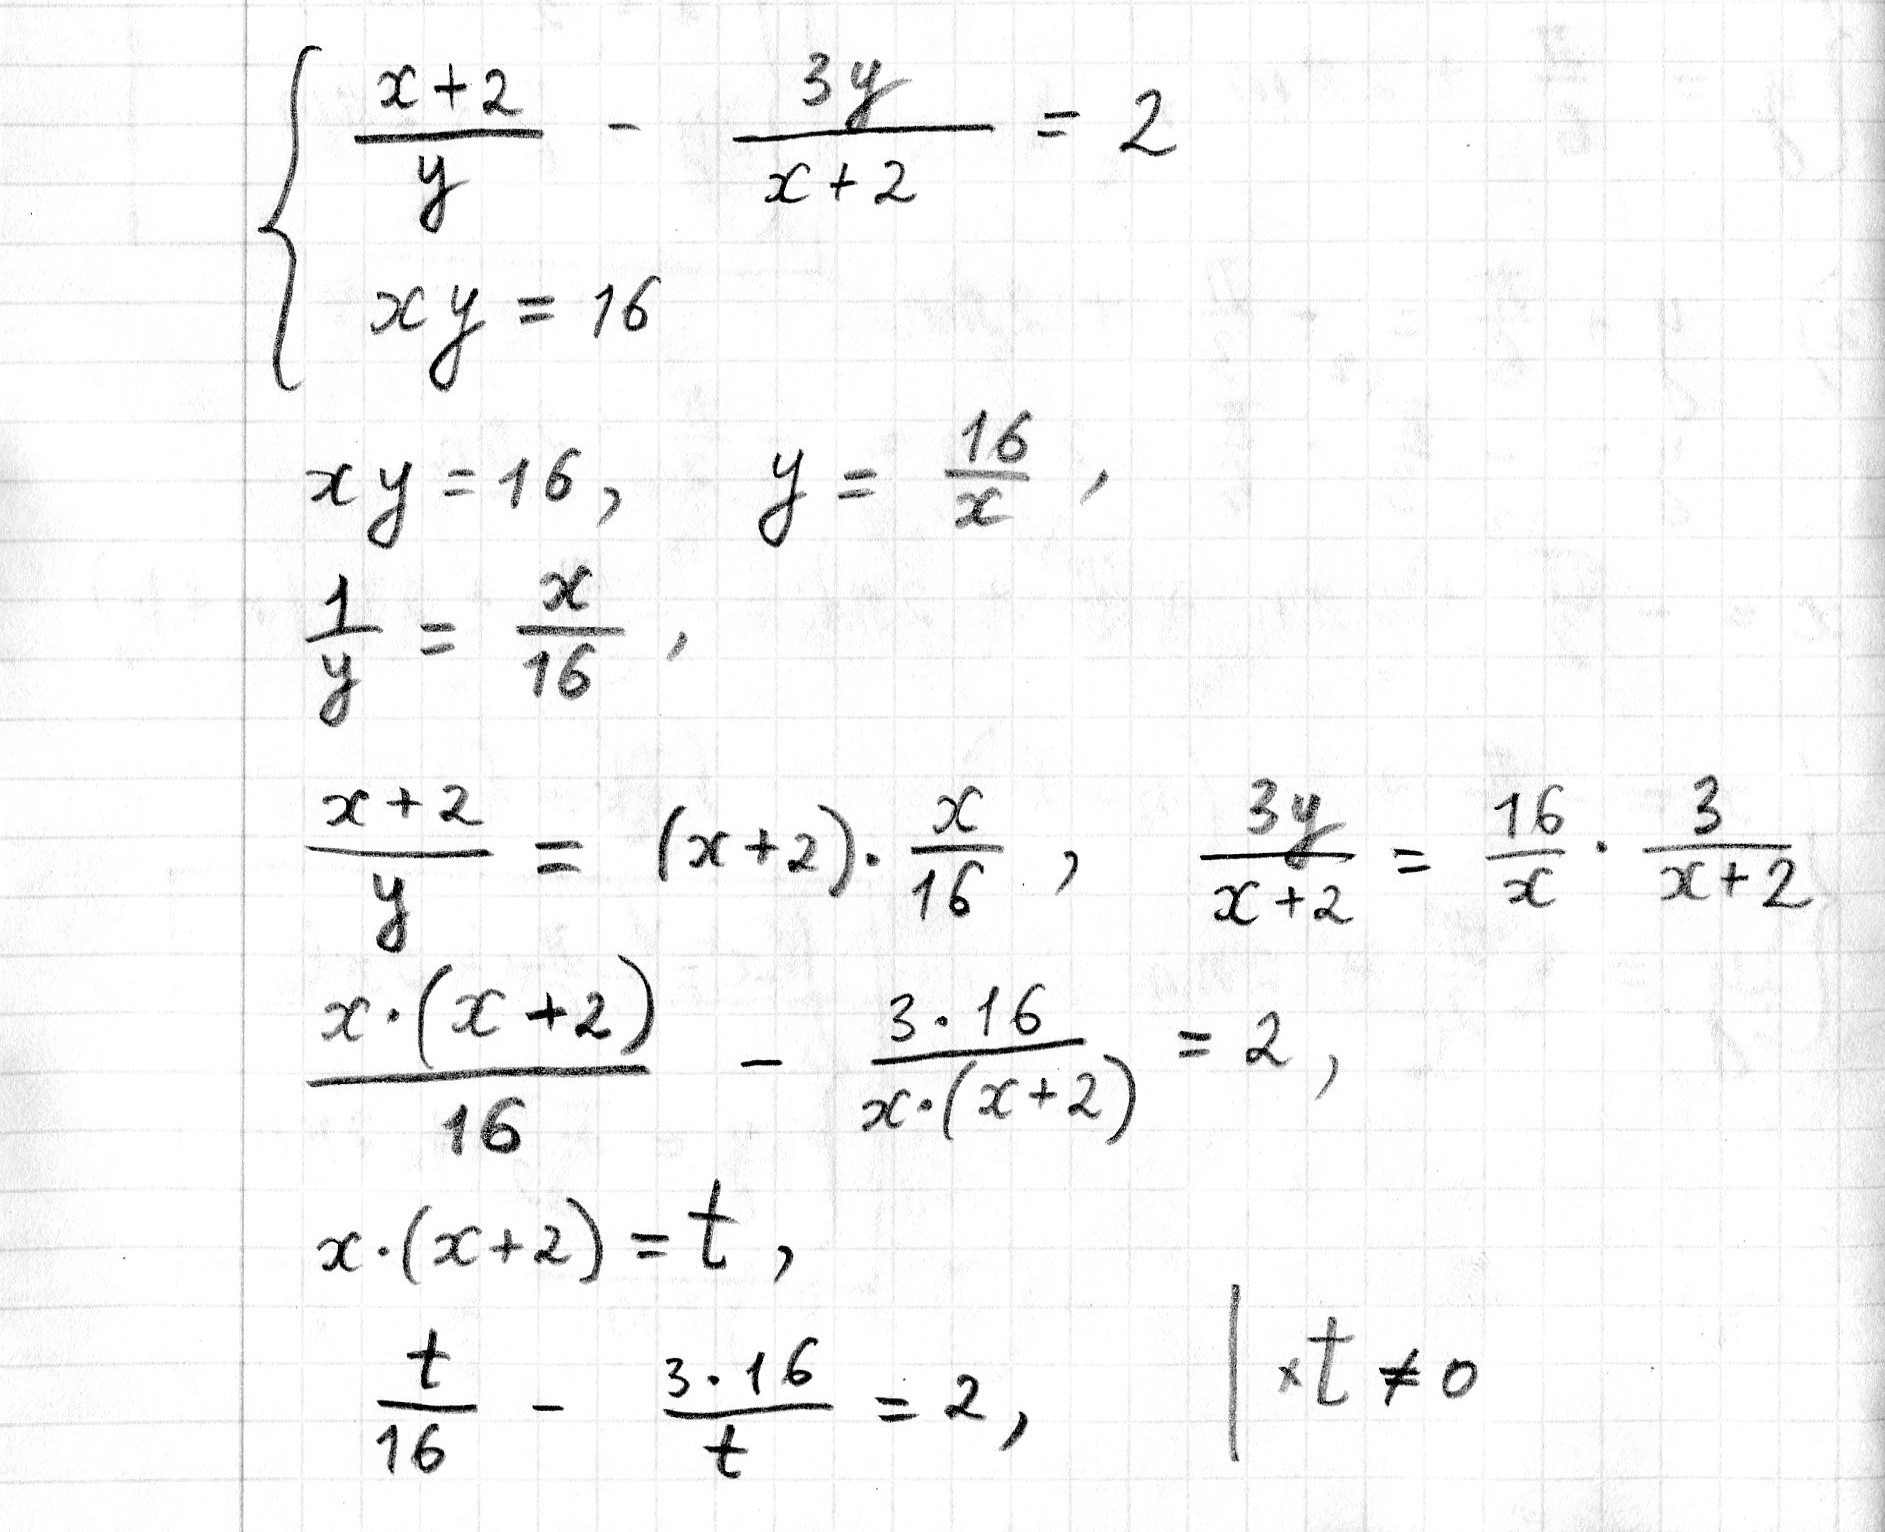 { (x+2)/y - 3y/(x+2) = 2
xy = 16
xy = 16, y = 16/x,
1/y = x/16,
(x+2)/y = (x+2)·x/16, 3y/(x+2) = 16/x · 3/(x+2)
x·(x+2)/16 - 3·16/(x·(x+2)) = 2,
x·(x+2) = t,
t/16 - 3·16/t = 2, | ×t ≠ 0